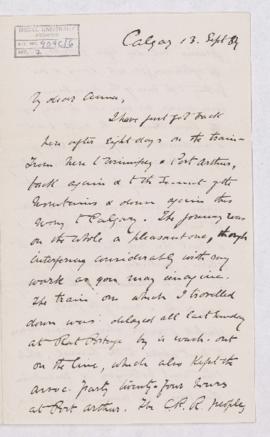 McGILL UNIVERSITY
ARCHIVES
ACC. NO.
REF.
Calgary 13. Sept 84
My dear Anna,
I have just got back
here after eight days on the train –
From here to Winnipeg & Port Arthur,
back again & to the Summit of the
Mountains & down again this
way to Calgary. The journey was
on the whole a pleasant one, though
interfering considerably with my
work as you may imagine.
The train on which I travelled
down was delayed all last Sunday
at Rat Portage by a wash-out
on the line, which also kept the
above party twenty-four hours
at Port Arthur. The C.P.R. people